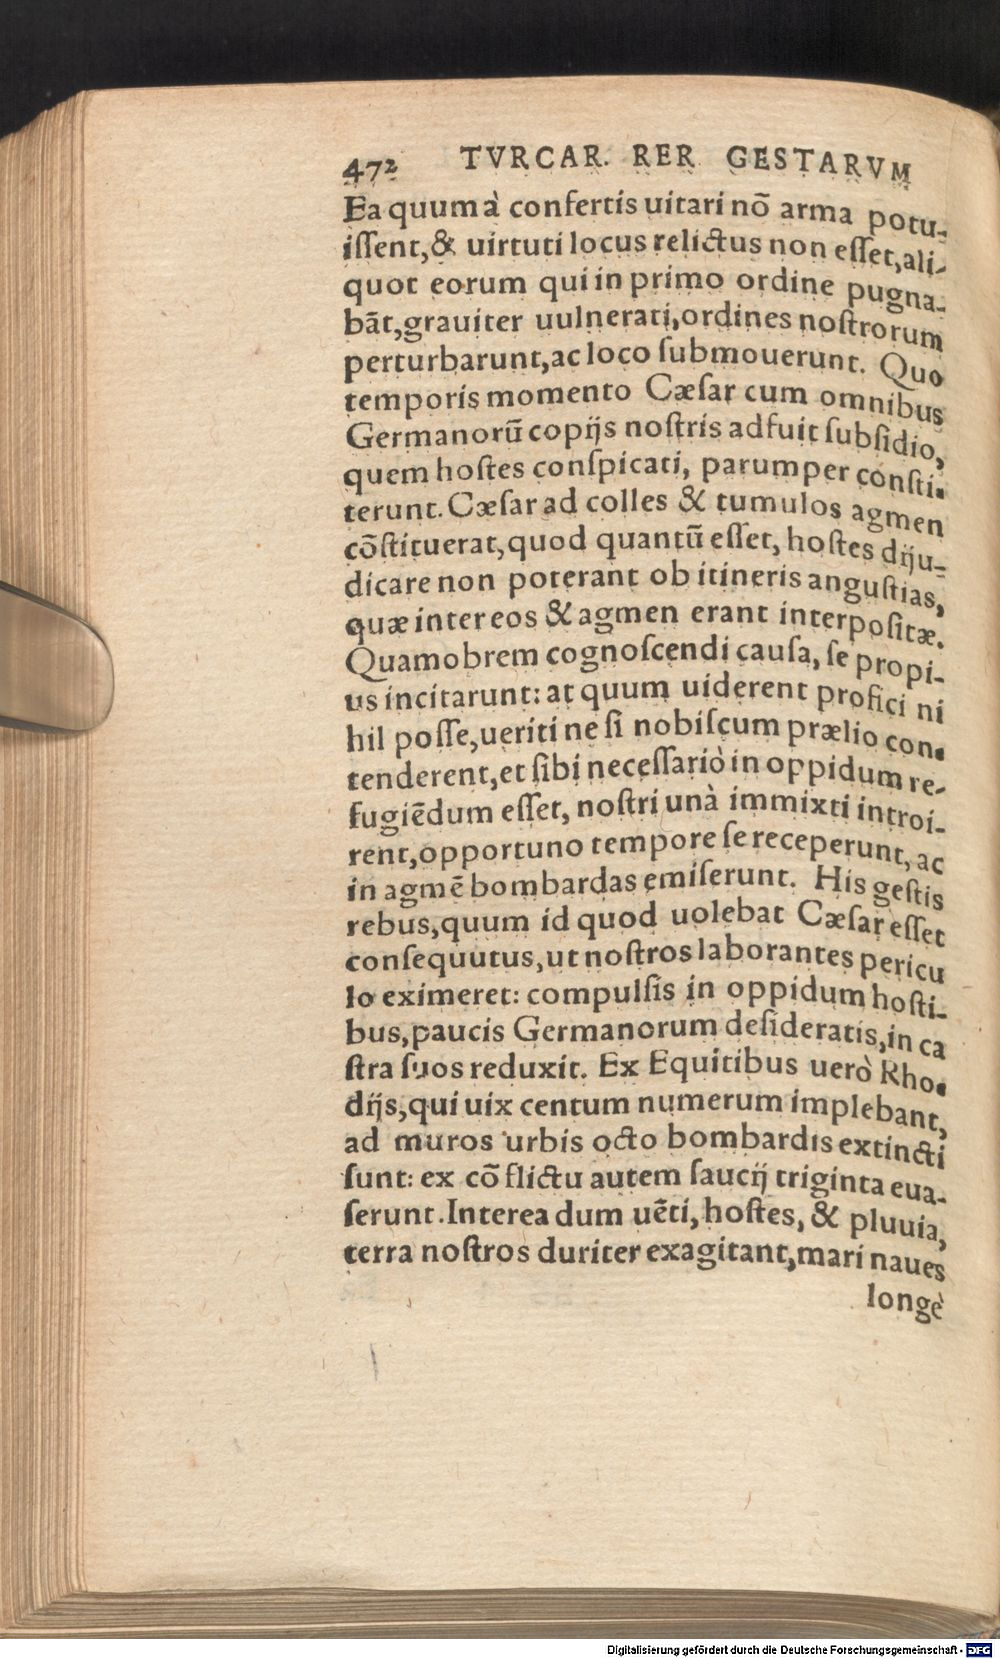 472 TVRCAR. RER GESTARVM
Ea quum à confertis uitari nõ arma potu-
iſſent, & uirtuti locus relictus non eſſet, ali-
quot eorum qui in primo ordine pugna-
bãt, grauiter uulnerati, ordines noſtrorum
perturbarunt, ac loco ſubmouerunt. Quo
temporis momento Cæſar cum omnibus
Germanorũ copijs noſtris adfuit ſubſidio,
quem hoſtes conſpicati, parumper conſti-
terunt. Cæſar ad colles & tumulos agmen
cõſtituerat, quod quantũ eſſet, hoſtes diju-
dicare non poterant ob itineris anguſtias,
quæ inter eos & agmen erant interpoſitæ.
Quamobrem cognoſcendi cauſa, ſe propi-
us incitarunt: at quum uiderent profici ni
hil poſſe, ueriti ne ſi nobiſcum prælio con-
tenderent, et ſibi neceſſariò in oppidum re-
fugiẽdum eſſet, noſtri unà immixti introi-
rent, opportuno tempore ſe receperunt, ac
in agmẽ bombardas emiſerunt. His geſtis
rebus, quum id quod uolebat Cæſar eſſet
conſequutus, ut noſtros laborantes pericu
lo eximeret: compulſis in oppidum hoſti-
bus, paucis Germanorum deſideratis, in ca
ſtra ſuos reduxit. Ex Equitibus uerò Rho-
dijs, qui uix centum numerum implebant,
ad muros urbis octo bombardis extincti
ſunt: ex cõflictu autem ſaucij triginta eua-
ſerunt. Interea dum uẽti, hoſtes, & pluuia,
terra noſtros duriter exagitant, mari naues
longè
Digitalisierung gefördert durch die Deutsche Forschungsgemeinschaft - DFG